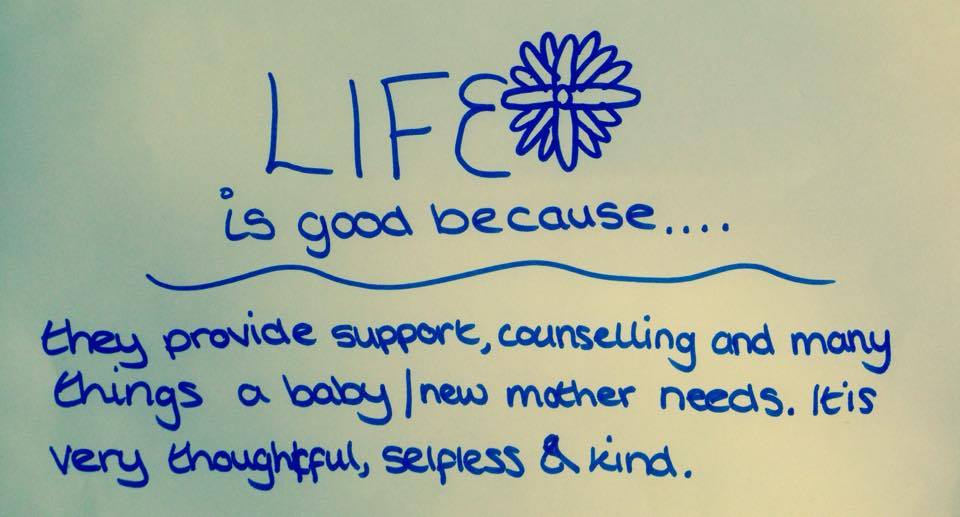 LIFE
is good because....
they provide support, counselling and many
things a baby/new mother needs. It is
very thoughtful, selfless & kind.